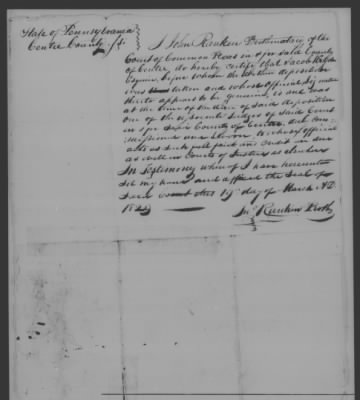 State of Pennsylvania
Centre County, ss.
I John Rankin Prothonotary of the
Court of Common Pleas in & for said County
of Centre do hereby certify that Jacob
Esquire, before whom the within deposition
was taken and whose official signature
thereto appears to be genuine, is and was
at the time of the taking of said deposition
one of the associate Judges of said Court
in & for said County of Centre, duly com-
missioned and sworn to whose official
acts as such full faith and credit is due
as well in Courts of Justice as elsewhere
In Testimony whereof I have hereunto
set my hand and affixed the Seal of
said court this 19th day of March A.D.
Jno Rankin Proth